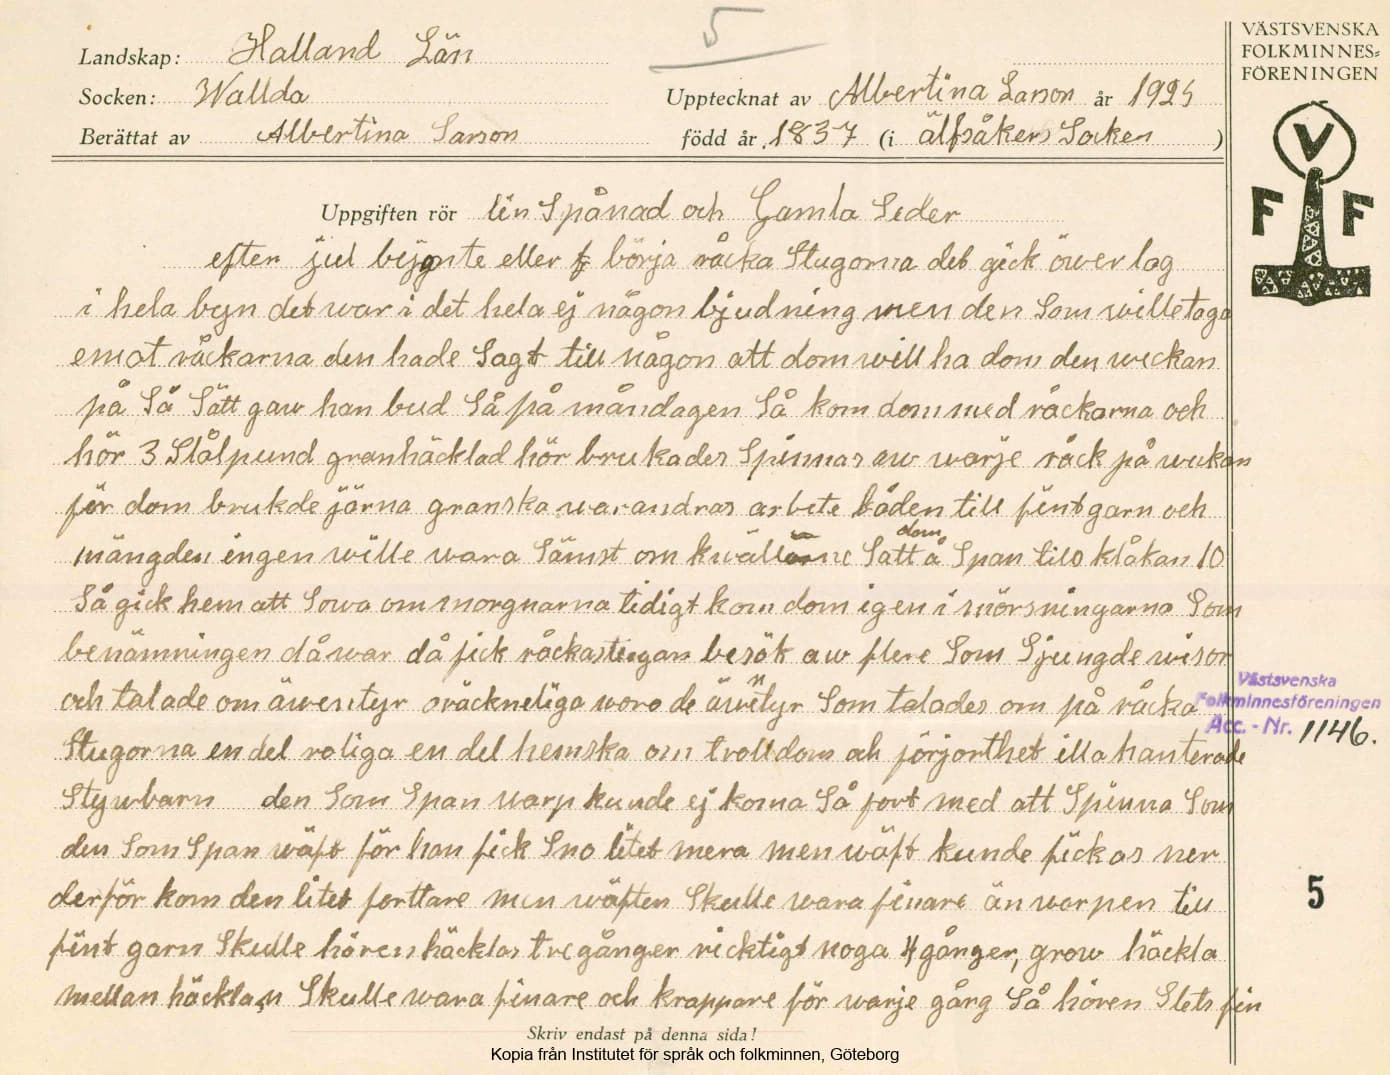 5
VÄSTSVENSKA
FOLKMINNES=
FÖRENINGEN
V
F F
Landskap: Halland Län
Socken: Wallda
Upptecknat av Albertina Larson år 1925
Berättat av Albertina Larson
född år 1837 (i älfsåkers Socken )
Uppgiften rör lin Spånad och Gamla Seder
efter jul begynte eller börja råcka Stugorna det gick öwer lag
i hela byn det war i det hela ej någon bjudning men den Som wille taga
emot råckarna den hade Sagt till någon att dom will ha dom den weckan
på Så Sätt gaw han bud Så på måndagen Så kom dom med råckarna och
hör 3 Stålpund granhäcklad hör brukades Spinnas aw warje råck på weckan
för dom brukde järna granska warandras arbete båden till fint garn och
mängden ingen wille wara Sämst om kwällarne Satt dom å Span till klåkan 10
Så gick hem att Sowa om morgnarna tidigt kom dom igen i mörsningarna Som
benämningen då war då fick råckastugan besök aw flere Som Sjungde wisor
och talade om äwentyr oräckneliga woro de äwentyr Som talades om på råcka
Stugorna en del roliga en del hemska om trolldom och förjorthet illa hanterade
Stywbarn den Som Span warp kunde ej koma Så fort med att Spinna Som
den Som Span wäft för han fick Sno litet mera men wäft kunde fickas ner
derför kom den litet forttare men wäften Skulle wara finare än warpen till
fint garn Skulle hören häcklas tre gånger ricktigt noga 4 gånger, grow häckla
mellan häcklan Skulle wara finare och krappare för warje gång Så hören Slets fin
Västsvenska
Folkminnesföreningen
Acc. - Nr. 1146.
5
Skriv endast på denna sida!
Kopia från Institutet för språk och folkminnen, Göteborg